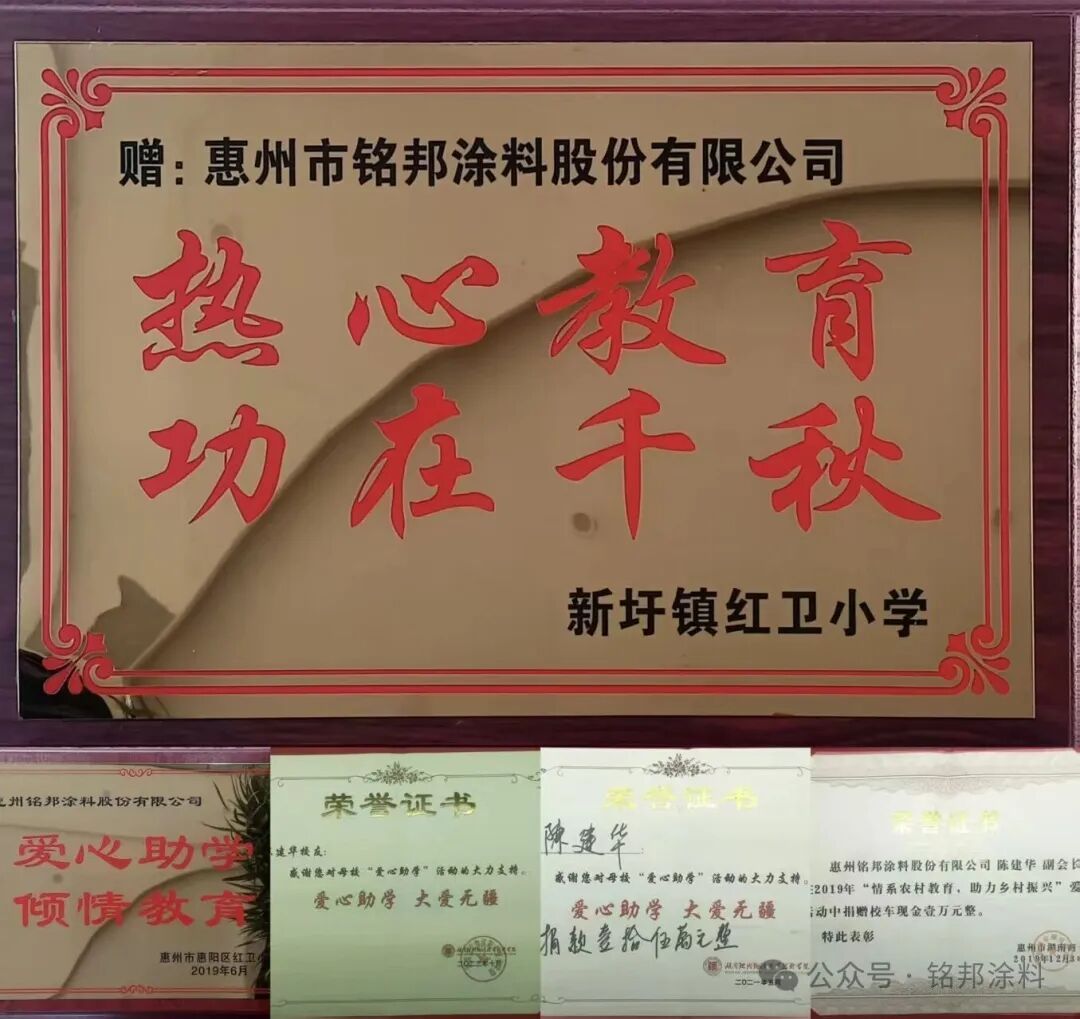 赠：惠州市铭邦涂料股份有限公司
热心教育
功在千秋
新圩镇红卫小学
州铭邦涂料股份有限公司
爱心助学
倾情教育
惠州市惠阳区红
2019年6月
荣誉证书
建华校友：
感谢您对母校“爱心助学”活动的大力支持。
爱心助学 大爱无疆
荣誉证书
陳建华
感谢您对母校“爱心助学”活动的大力支持。
爱心助学 大爱无疆
捐款壹拾伍萬元整
二〇二一年五月
荣誉证书
惠州铭邦涂料股份有限公司 陈建华 副会长
2019年“情系农村教育，助力乡村振兴”爱
活动中捐赠校车现金壹万元整。
特此表彰
惠州市湖南商
2019年12月3
公众号 · 铭邦涂料